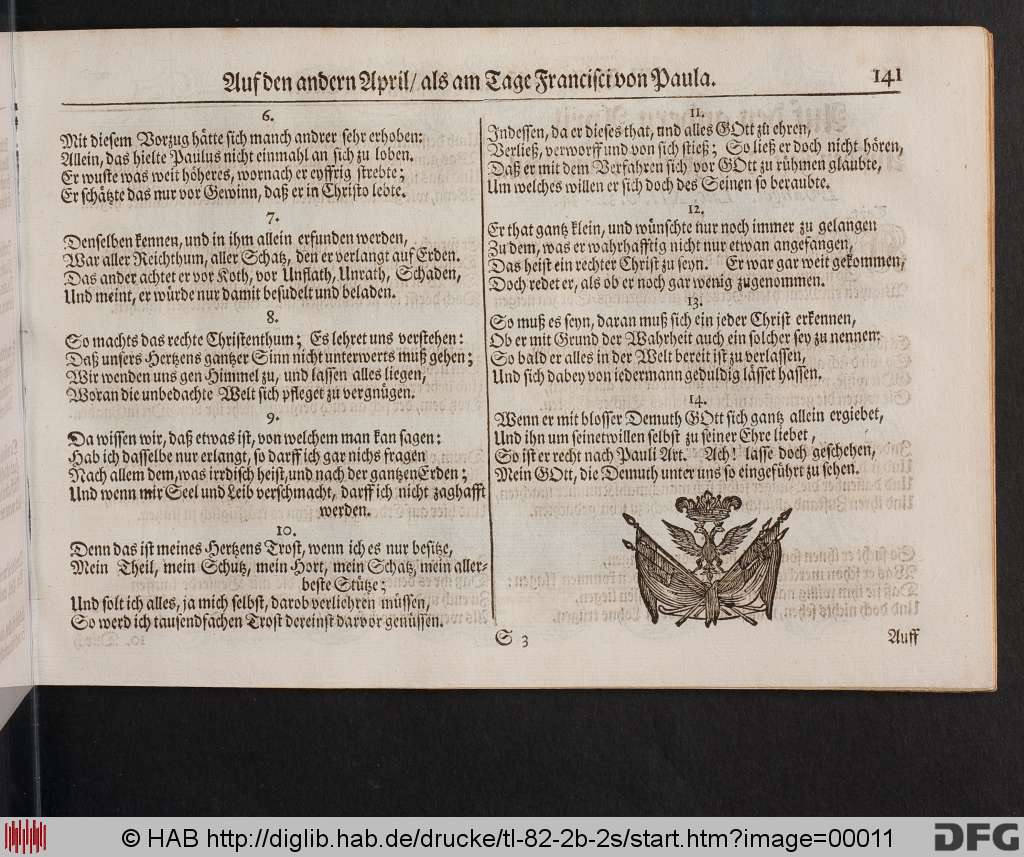 Auf den andern April/ als am Tage Francisci von Paula.
141
6.
Mit diesem Vorzug hätte sich manch andrer sehr erhoben:
Allein, das hielte Paulus nicht einmahl an sich zu loben.
Er wuste was weit höheres, wornach er eyffrig strebte;
Er schätzte das nur vor Gewinn, daß er in Christo lebte.
7.
Denselben kennen, und in ihm allein erfunden werden,
War aller Reichthum, aller Schatz, den er verlangt auf Erden.
Das ander achtet er vor Koth, vor Unflath, Unrath, Schaden,
Und meint, er würde nur damit besudelt und beladen.
8.
So machts das rechte Christenthum; Es lehret uns verstehen:
Daß unsers Hertzens gantzer Sinn nicht unterwerts muß gehen;
Wir wenden uns gen Himmel zu, und lassen alles liegen,
Woran die unbedachte Welt sich pfleget zu vergnügen.
9.
Da wissen wir, daß etwas ist, von welchem man kan sagen:
Hab ich dasselbe nur erlangt, so darff ich gar nichs fragen
Nach allem dem, was irrdisch heist, und nach der gantzen Erden;
Und wenn mir Seel und Leib verschmacht, darff ich nicht zaghafft
werden.
10.
Denn das ist meines Hertzens Trost, wenn ich es nur besitze,
Mein Theil, mein Schutz, mein Hort, mein Schatz, mein aller-
beste Stütze;
Und solt ich alles, ja mich selbst, darob verliehren müssen,
So werd ich tausendfachen Trost dereinst darvor genüssen.
11.
Indessen, da er dieses that, und alles GOtt zu ehren,
Verließ, verworff und von sich stieß; So ließ er doch nicht hören,
Daß er mit dem Verfahren sich vor GOtt zu rühmen glaubte,
Um welches willen er sich doch des Seinen so beraubte.
12.
Er that gantz klein, und wünschte nur noch immer zu gelangen
Zu dem, was er wahrhafftig nicht nur etwan angefangen,
Das heist ein rechter Christ zu seyn. Er war gar weit gekommen,
Doch redet er, als ob er noch gar wenig zugenommen.
13.
So muß es seyn, daran muß sich ein jeder Christ erkennen,
Ob er mit Grund der Wahrheit auch ein solcher sey zu nennen:
So bald er alles in der Welt bereit ist zu verlassen,
Und sich dabey von iedermann geduldig lässet hassen.
14.
Wenn er mit blosser Demuth GOtt sich gantz allein ergiebet,
Und ihn um seinetwillen selbst zu seiner Ehre liebet,
So ist er recht nach Pauli Art. Ach! lasse doch geschehen,
Mein GOtt, die Demuth unter uns so eingeführt zu sehen.
S 3
Auff
© HAB http://diglib.hab.de/drucke/tl-82-2b-2s/start.htm?image=00011
DFG